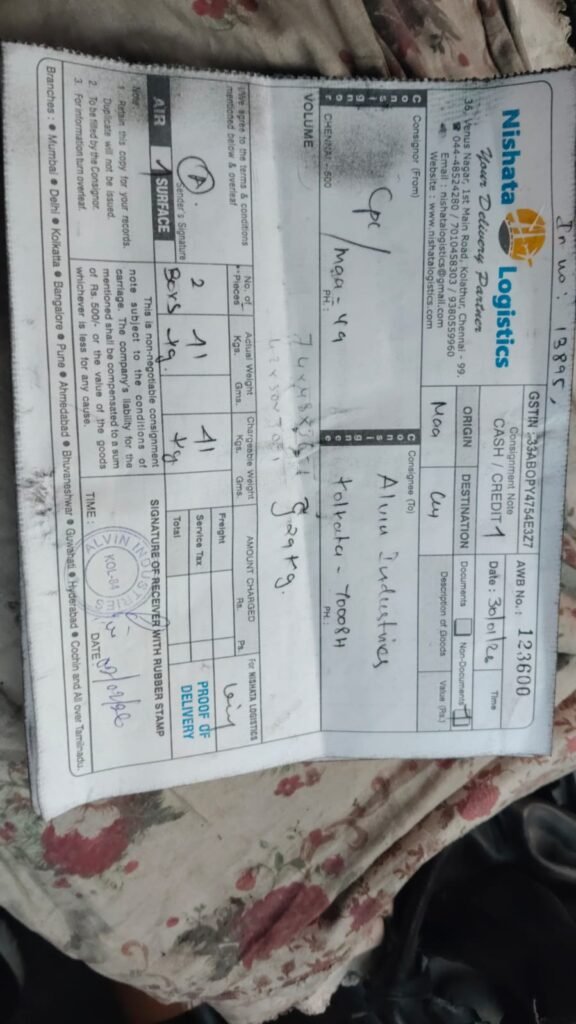 In no: 13895,
Nishata Logistics
Your Delivery Partner
36, Venus Nagar, 1st Main Road, Kolathur, Chennai - 99.
☎ 044-48524280 / 7010458303 / 9380559960
Email : nishatalogistics@gmail.com
Website : www.nishatalogistics.com
GSTIN : 33ABOPY4754E3Z7
Consignment Note
CASH / CREDIT
AWB No.: 123600
Date : 30/01/26
Time
ORIGIN
DESTINATION
Maa
Documents
Non-Documents
Description of Goods
Value (Rs.)
Consignor
Consignor (From)
Cpc / Maa - 49
CHENNAI - 600
PH. :
Consignee
Consignee (To)
Alvin Industries
Kolkata - 700084
PH. :
VOLUME
29 kg.
I/We agree to the terms & conditions
mentioned below & overleaf
Sender's Signature
No. of Pieces
Actual Weight
Kgs. Gms.
Chargeable Weight
Kgs. Gms.
AMOUNT CHARGED
Rs. Ps.
For NISHATA LOGISTICS
2
41
41
kg
kg
Freight
Service Tax
Total
PROOF OF
DELIVERY
AIR
SURFACE
Note:
1. Retain this copy for your records.
Duplicate will not be issued.
2. To be filled by the Consignor.
3. For information turn overleaf.
This is non-negotiable consignment
note subject to the conditions of
carriage. The company's liability for the
mentioned shall be compensated to a sum
of Rs. 500/- or the value of the goods
whichever is less for any cause.
SIGNATURE OF RECEIVER WITH RUBBER STAMP
ALVIN INDUSTRIES
KOL-84
TIME :
DATE :
Branches : ● Mumbai ● Delhi ● Kolkatta ● Bangalore ● Pune ● Ahmedabad ● Bhuvaneshwar ● Guwahati ● Hyderabad ● Cochin and All over Tamilnadu.